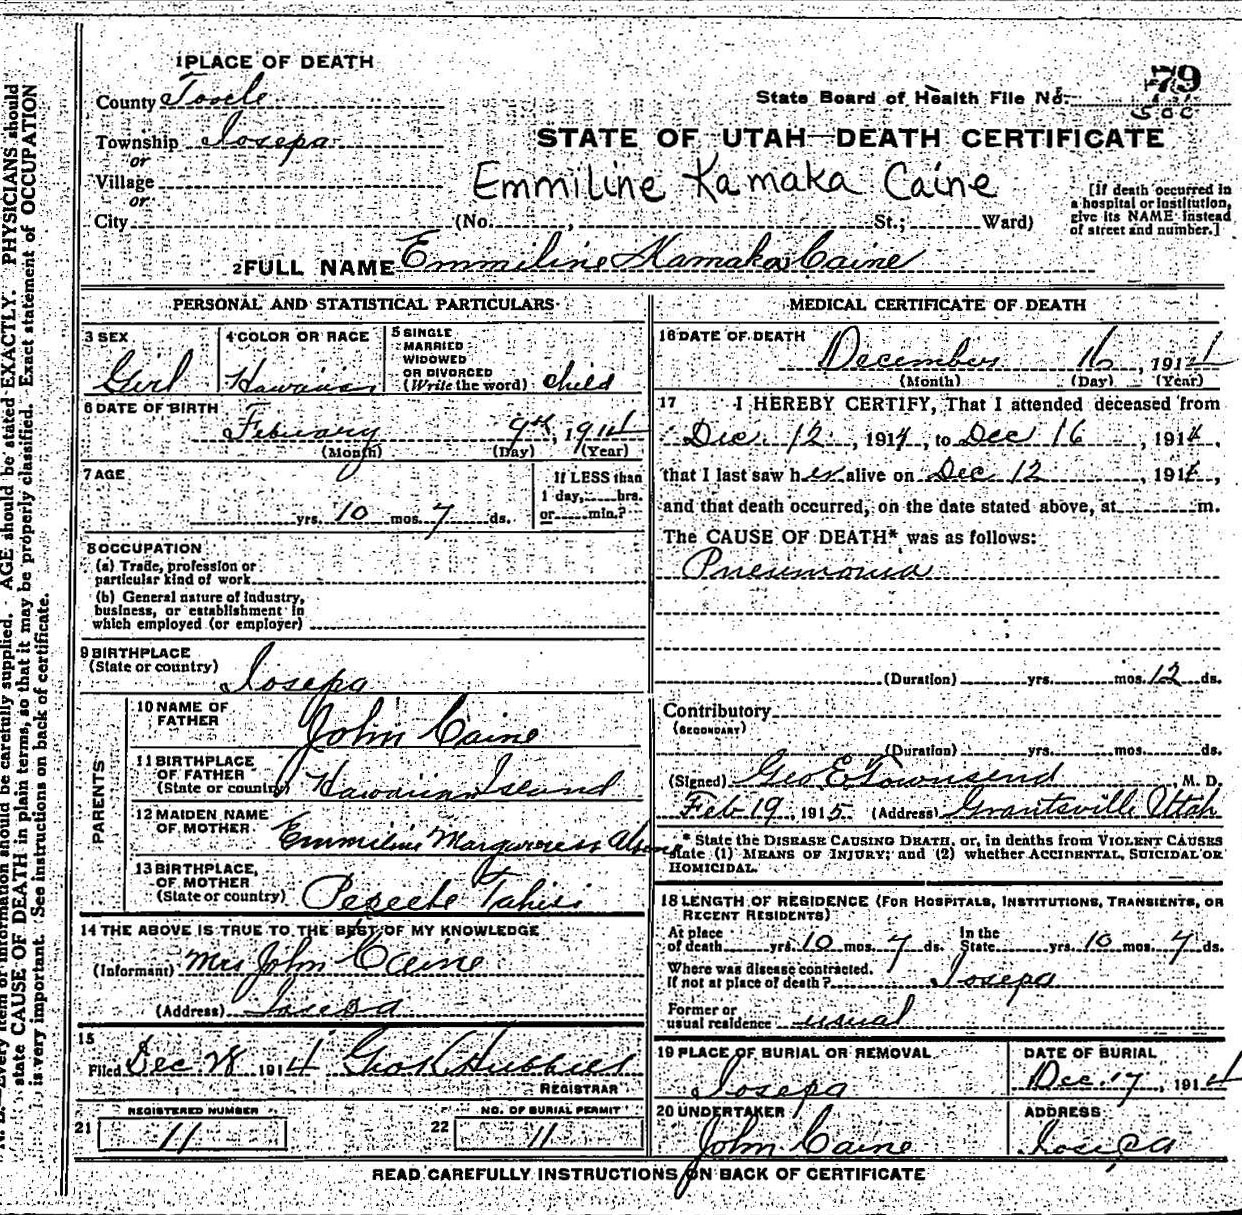 1 PLACE OF DEATH
County Tooele
Township Iosepa
or
Village
or
City (No. , St.; Ward)
79
State Board of Health File No.
STATE OF UTAH—DEATH CERTIFICATE
Emmiline Kamaka Caine
[If death occurred in
a hospital or institution,
give its NAME instead
of street and number.]
2 FULL NAME Emmiline Kamaka Caine
PERSONAL AND STATISTICAL PARTICULARS
3 SEX
Girl
4 COLOR OR RACE
Hawaiian
5 SINGLE
MARRIED
WIDOWED
OR DIVORCED
(Write the word) child
6 DATE OF BIRTH
February 9th, 1914
(Month) (Day) (Year)
7 AGE
yrs. 10 mos. 7 ds.
If LESS than
1 day, hrs.
or min.?
8 OCCUPATION
(a) Trade, profession or
particular kind of work
(b) General nature of industry,
business, or establishment in
which employed (or employer)
9 BIRTHPLACE
(State or country)
Iosepa
PARENTS
10 NAME OF
FATHER
John Caine
11 BIRTHPLACE
OF FATHER
(State or country) Hawaiian Island
12 MAIDEN NAME
OF MOTHER Emmiline
13 BIRTHPLACE,
OF MOTHER
(State or country)
14 THE ABOVE IS TRUE TO THE BEST OF MY KNOWLEDGE
(Informant) Mrs John Caine
(Address) Iosepa
15
Filed Dec 28 1914 Geo K Hubbard
REGISTRAR
REGISTERED NUMBER
21 11
NO. OF BURIAL PERMIT
22 11
MEDICAL CERTIFICATE OF DEATH
16 DATE OF DEATH
December 16, 1914
(Month) (Day) (Year)
17 I HEREBY CERTIFY, That I attended deceased from
Dec. 12, 1914, to Dec 16, 1914,
that I last saw her alive on Dec 12, 1914,
and that death occurred, on the date stated above, at m.
The CAUSE OF DEATH* was as follows:
Pneumonia
(Duration) yrs. mos. 12 ds.
Contributory
(SECONDARY)
(Duration) yrs. mos. ds.
(Signed) Geo E Townsend M. D.
Feb 19, 1915 (Address) Grantsville Utah
* State the DISEASE CAUSING DEATH, or, in deaths from VIOLENT CAUSES
state (1) MEANS OF INJURY; and (2) whether ACCIDENTAL, SUICIDAL OR
HOMICIDAL.
18 LENGTH OF RESIDENCE (FOR HOSPITALS, INSTITUTIONS, TRANSIENTS, OR
RECENT RESIDENTS)
At place
of death yrs. 10 mos. 7 ds.
In the
State yrs. 10 mos. 7 ds.
Where was disease contracted.
If not at place of death? Iosepa
Former or
usual residence usual
19 PLACE OF BURIAL OR REMOVAL
Iosepa
DATE OF BURIAL
Dec. 17, 1914
20 UNDERTAKER
John Caine
ADDRESS
Iosepa
READ CAREFULLY INSTRUCTIONS ON BACK OF CERTIFICATE
Every item of information should be carefully supplied. AGE should be stated EXACTLY. PHYSICIANS should
state CAUSE OF DEATH in plain terms, so that it may be properly classified. Exact statement of OCCUPATION
is very important. See instructions on back of certificate.